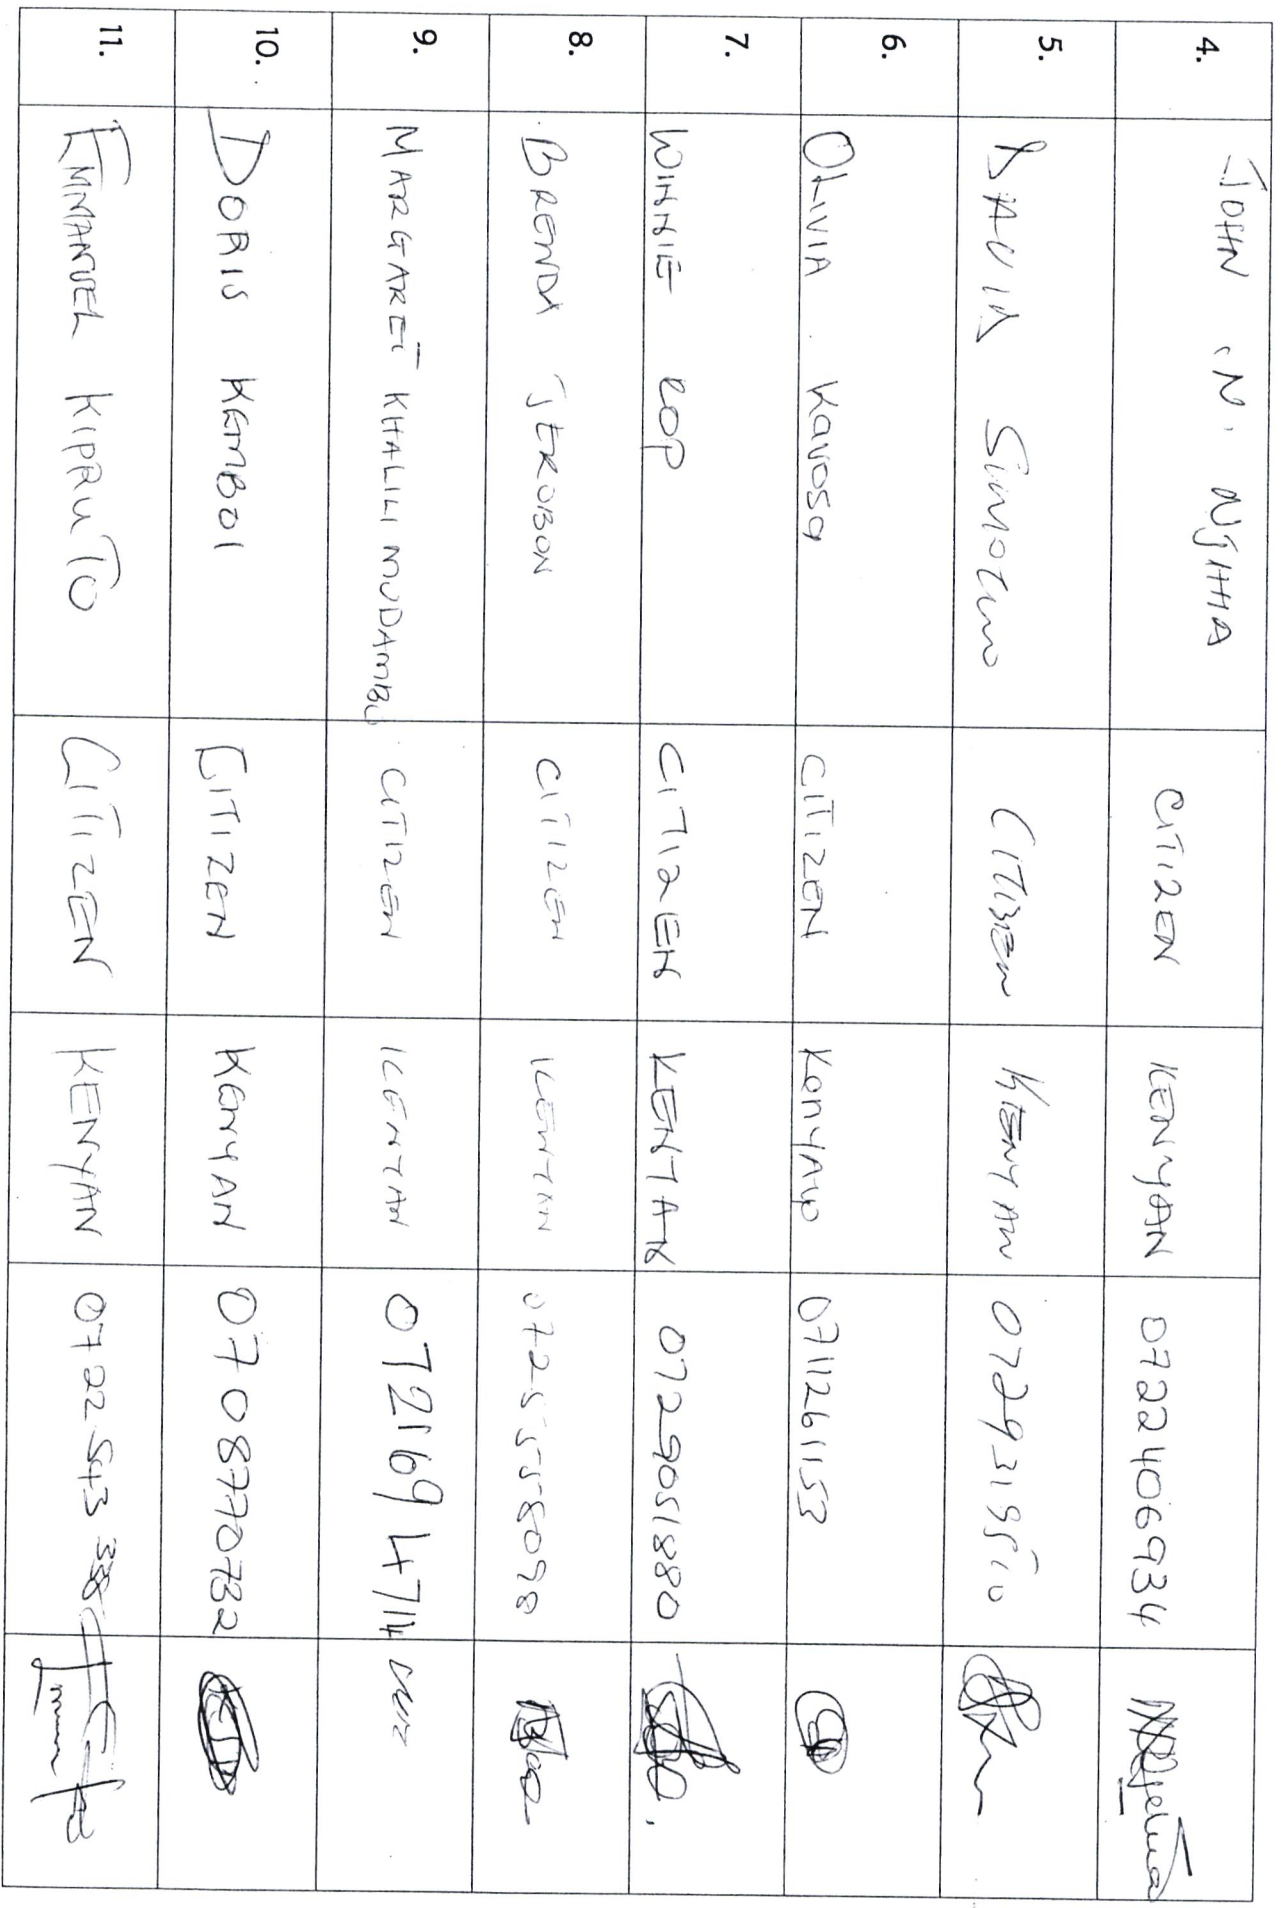 4. JOHN N. NJIHHA CITIZEN KENYAN 0722406934
5. DAVID Simotwo CITIZEN KENYAN
6. OLIVIA Kavosa CITIZEN KenyAn 0711261153
7. WINNIE ROP CITIZEN KENYAN 0729051880
8. BRENDA JEROBON CITIZEN KENYAN 0725558098
9. MARGARET KHALILI MUDAMBU CITIZEN KENYAN 0721694714
10. DORIS KEMBOI CITIZEN KENYAN 0708770732
11. EMMANUEL KIPRUTO CITIZEN KENYAN 0722543